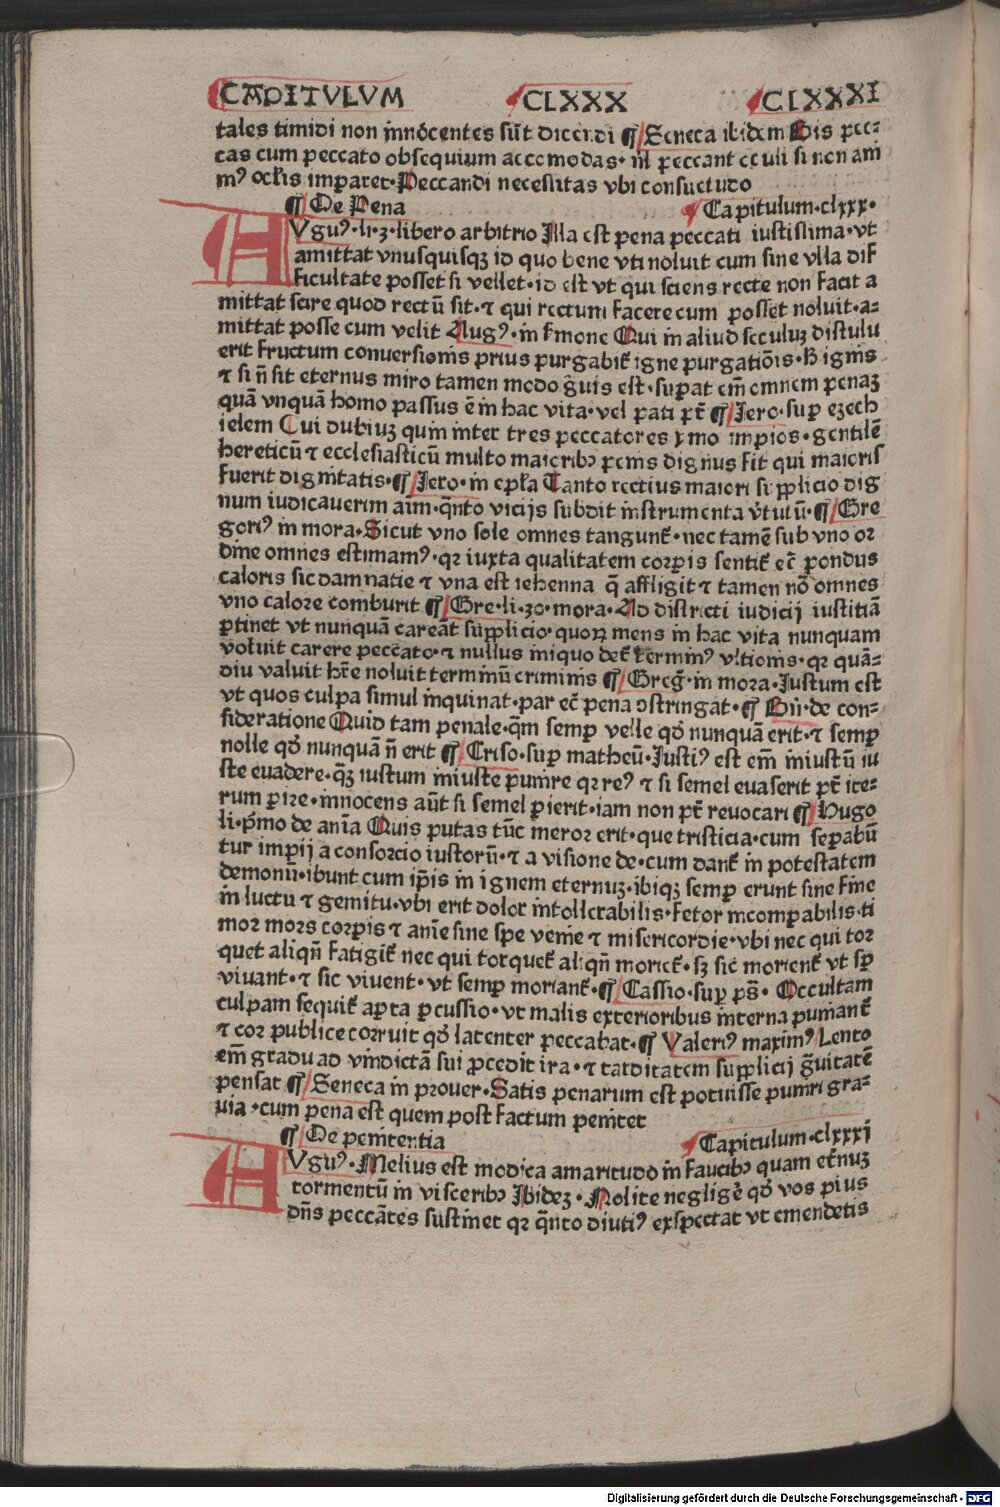 CAPITULUM CLXXX CLXXXI
tales timidi non innocentes sūt dicendi ¶ Seneca ibidem Bis pec⸗
cas cum peccato obsequium accomodas· nil peccant oculi si non am
mꝰ oclis imperaret·Peccandi necessitas vbi consuetudo
¶ De Pena Capitulum·clxxx·
AVguꝰ·li·3·libero arbitrio Illa est pena peccati iustissima·vt
amittat vnusquisqꝫ id quo bene vti noluit cum sine vlla dif
ficultate posset si vellet·id est vt qui sciens recte non facit a
mittat scire quod rectū sit·⁊ qui rectum facere cum posset noluit·a⸗
mittat posse cum velit Augꝰ·in ẜmone Qui in aliud seculuꝫ distulu
erit fructum conuersionis prius purgabiť igne purgatiōis·B ignis
⁊ si n̄ sit eternus miro tamen modo g̈uis est·suꝑat em̄ omnem penaꝫ
quā vnquā homo passus ē in hac vita·vel pati pōt ¶ Jero·suꝑ ezech
ielem Cui dubiuꝫ quin inter tres peccatores xṗmo impios·gentilē
hereticū ⁊ ecclesiasticū multo maioribꝫ penis dignus sit qui maioris
fuerit dignitatis·¶ Jero·in epła Tanto rectius maiori supplicio dig
num iudicauerim aīm·q̄nto vicijs subdit instrumenta v̇tutū·¶ Gre
goriꝰ in mora·Sicut vno sole omnes tangunť·nec tamē sub vno or
dine omnes estimamꝰ·qꝛ iuxta qualitatem corꝑis sentiť ec̄ pondus
caloris sic damnatie ⁊ vna est iehenna q̄ affligit ⁊ tamen nō omnes
vno calore comburit ¶ Gre·li·30·mora·Ad districti iudicij iustitiā
ꝑtinet vt nunquā careāt supplicio·quoꝝ mens in hac vita nunquam
voluit carere peccato·⁊ nullus iniquo deť terminꝰ vltionis·qꝛ quā⸗
diu valuit hr̄e noluit terminū criminis ¶ Greg̈·in mora·Justum est
vt quos culpa simul inquinat·par ec̄ pena ↄstringat·¶ Bn̄·de con⸗
sideratione Quid tam penale·q̄m semꝑ velle qd̓ nunquā erit·⁊ semꝑ
nolle qd̓ nunquā n̄ erit ¶ Criso·suꝑ matheū·Justiꝰ est em̄ iniustū iu
ste euadere·q̄ꝫ iustum iniuste punire qꝛ reꝰ ⁊ si semel euaserit pōt ite⸗
rum ꝑire·innocens aūt si semel ꝑierit·iam non pōt reuocari ¶ Hugo
li·p̄mo de anīa Quis putas tūc meror erit·que tristicia·cum seꝑabū
tur impij a consorcio iustorū·⁊ a visione de·cum danť in potestatem
demonū·ibunt cum ip̄is in ignem eternuꝫ·ibiqꝫ semꝑ erunt sine fine
in luctu ⁊ gemitu·vbi erit dolor intollerabilis·fetor incomꝑabilis·ti
mor mors corꝑis ⁊ anīe sine spe venie ⁊ misericordie·vbi nec qui tor
quet aliqn̄ fatigiť nec qui torqueť aliqn̄ morieť·sꝫ sic morienť vt sp̄
viuant·⁊ sic viuent·vt semꝑ morianť·¶ Cassio·suꝑ ps̄· Occultam
culpam sequiť aꝑta ꝑcussio·vt malis exterioribus interna punianť
⁊ cor publice corruit qd̓ latenter peccabat·¶ Valeriꝰ maximꝰ Lento
em̄ gradu ad vindictā sui ꝓcedit ira·⁊ tarditatem supplicij g̈uitatē
pensat ¶ Seneca in prouer·Satis penarum est potuisse puniri gra⸗
uia·cum pena est quem post factum penitet
¶ De penitentia Capitulum·clxxxi
AVguꝰ·Melius est modica amaritudo in faucibꝫ quam eťnuꝫ
tormentū in visceribꝫ Ibideꝫ·Nolite negligē qd̓ vos pius
dn̄s peccātes sustinet qꝛ q̄nto diutiꝰ exspectat vt emendetis
Digitalisierung gefördert durch die Deutsche Forschungsgemeinschaft · DFG